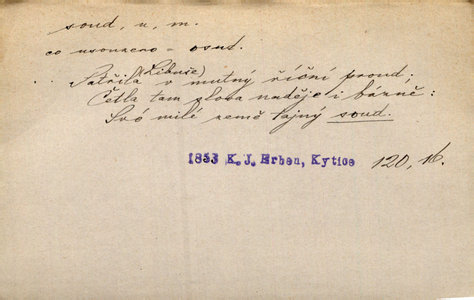 soud, u, m.
co usouzeno = osud.
(Libuše)
. . Patřila v mutný říční proud;
Četla tam slova naděje i bázně:
Své milé země tajný soud.
1853 K. J. Erben, Kytice 120, 16.